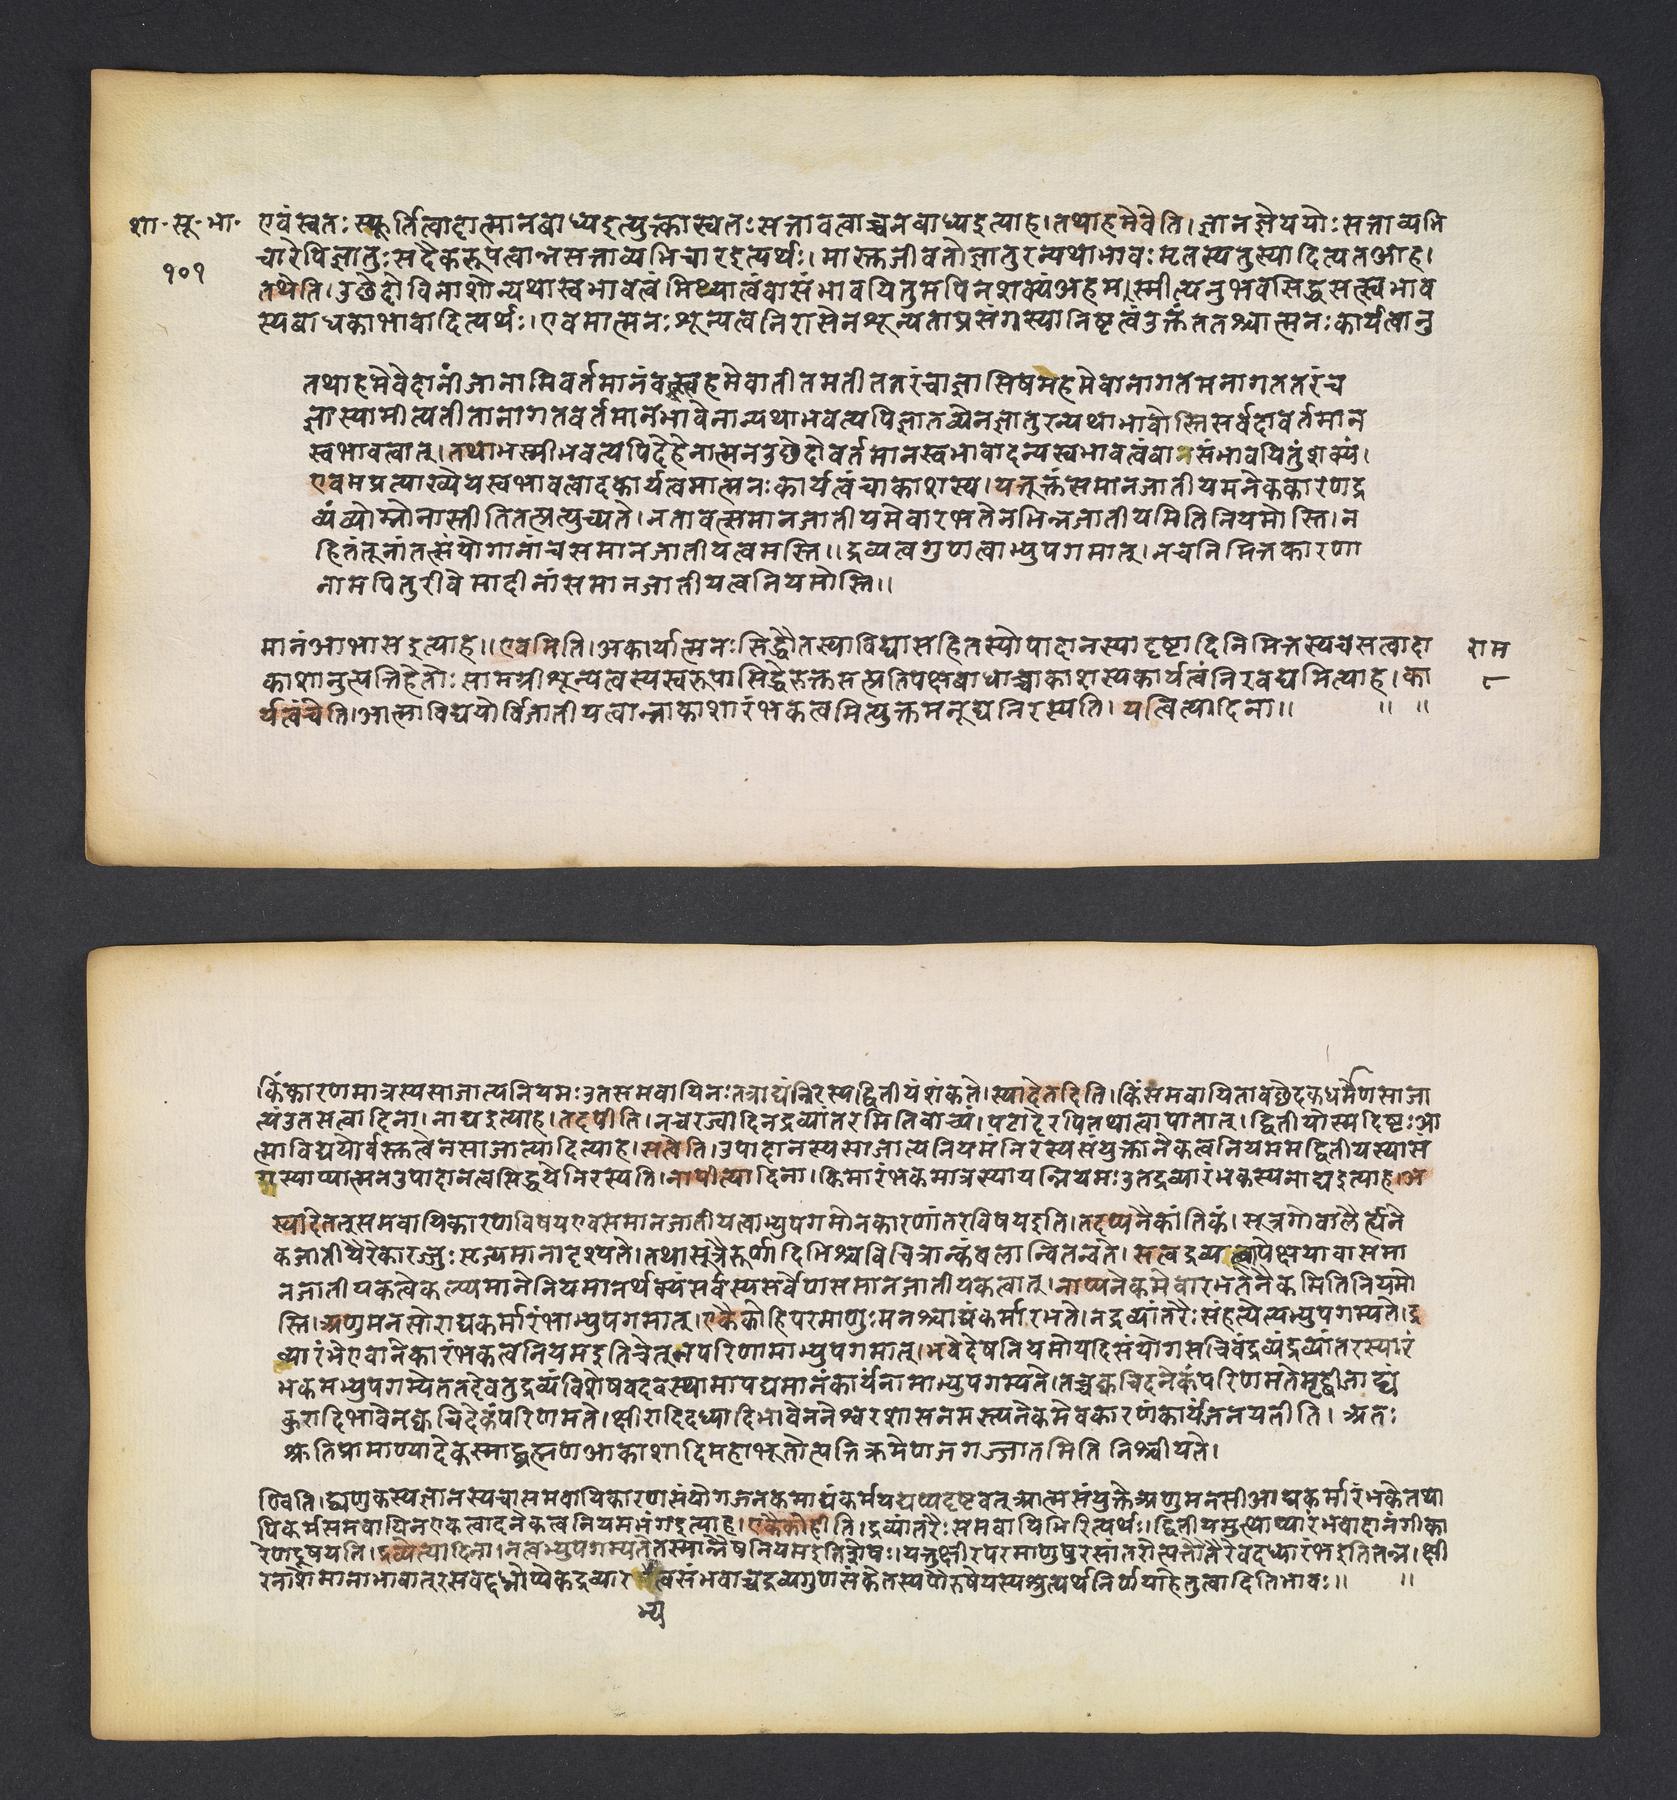 शा॰ सू॰ भा॰
१०१
एवं स्वतः स्फूर्तित्वादात्मानबाध्यइत्युक्त्वास्वतः सत्तावत्वाच्चनबाध्यइत्याह। तथाहमेवेति। ज्ञानज्ञेययोः सत्ताव्यभि
चारेपिज्ञातुः सदैकरूपत्वान्नसत्ताव्यभिचारइत्यर्थः। मास्तजीवतोज्ञातुरन्यथाभावः मृतस्यतुस्यादित्यतआह।
तथेति। उछेदोविनाशोन्यथास्वभावत्वंमिथ्यात्वंवासंभावयितुमपिनशक्यंअहमस्मीत्यनुभवसिद्धसत्स्वभाव
स्यबाधकाभावादित्यर्थः। एवमात्मनः शून्यत्वनिरासेनशून्यताप्रसंगस्यानिष्टत्वंउक्तंततश्चात्मनः कार्यत्वानु
तथाहमेवेदानींजानामिवर्तमानंवस्त्वहमेवातीतमतीततरंचाज्ञासिषमहमेवानागतमनागततरंच
ज्ञास्यामीत्यतीतानागतवर्तमानभावेनान्यथाभवत्यपिज्ञातव्येनज्ञातुरन्यथाभावोस्तिसर्वदावर्तमान
स्वभावत्वात्। तथाभस्मीभवत्यपिदेहेनात्मनउछेदोवर्तमानस्वभावादन्यस्वभावत्वंवानसंभावयितुंशक्यं।
एवमप्रत्याख्येयस्वभावत्वादकार्यत्वमात्मनः कार्यत्वंचाकाशस्य। यत्तूक्तंसमानजातीयमनेककारणद्र
व्यंव्योम्नोनास्तीतितत्प्रत्युच्यते। नतावत्समानजातीयमेवारभतेनभिन्नजातीयमितिनियमोस्ति। न
हितंतूनांतत्संयोगानांचसमानजातीयत्वमस्ति॥ द्रव्यत्वगुणत्वाभ्युपगमात्। नचनिमित्तकारणा
नामपितुरीवेमादीनांसमानजातीयत्वनियमोस्ति॥
मानंआभासइत्याह॥ एवमिति। अकार्यात्मनः सिद्धौतस्याविद्यासहितस्योपादानस्यादृष्टादिनिमित्तस्यचसत्वादा
काशानुत्पत्तिहेतोः सामग्रीशून्यत्वस्यस्वरूपासिद्धेरुक्तसत्प्रतिपक्षबाधाच्चाकाशस्यकार्यत्वंनिरवद्यमित्याह। का
र्यत्वंचेति। आत्माविद्ययोर्विजातीयत्वान्नाकाशारंभकत्वमित्युक्तमनूद्यनिरस्यति। यत्वित्यादिना॥ ॥ ॥
राम
८
किंकारणमात्रस्यसाजात्यनियमः उतसमवायिनः तत्राद्यंनिरस्यद्वितीयंशंकते। स्यादेतदिति। किंसमवायितावछेदकधर्मेणसाजा
त्यंउतसत्वादिना। नाद्यइत्याह। तदपीति। नचरज्वादिनद्रव्यांतरमितिवाच्यं। पटादेरपितथात्वापातात्। द्वितीयोस्मदिष्टः आ
त्माविद्ययोर्वस्तुत्वेनसाजात्यादित्याह। सत्वेति। उपादानस्यसाजात्यनियमंनिरस्यसंयुक्तानेकत्वनियममद्वितीयस्यासं
गस्याप्यात्मनउपादानत्वसिद्धयेनिरस्यति। नापीत्यादिना। किमारंभकमात्रस्यायंनियमः उतद्रव्यारंभकस्यनाद्यइत्याह। अ
स्यादेतत्समवायिकारणविषयएवसमानजातीयत्वाभ्युपगमोनकारणांतरविषयइति। तदप्यनैकांतिकं। सूत्रगोवालैर्ह्यने
कजातीयैरेकारज्जुः सृज्यमानादृश्यते। तथासूत्रैरूर्णादिभिश्चविचित्रान्कंबलान्वितन्वते। सत्वद्रव्यत्वापेक्षयावासमा
नजातीयकत्वेकल्प्यमानेनियमानर्थक्यंसर्वस्यसर्वेणसमानजातीयकत्वात्। नाप्यनेकमेवारभतेनैकमितिनियमो
स्ति। अणुमनसोराद्यकर्मारंभाभ्युपगमात्। एकैकोहिपरमाणुः मनश्चाद्यंकर्मारभते। नद्रव्यांतरैः संहत्येत्यभ्युपगम्यते। द्र
व्यारंभेएवानेकारंभकत्वनियमइतिचेत्नपरिणामाभ्युपगमात्। भवेदेषनियमोयदिसंयोगसचिवंद्रव्यंद्रव्यांतरस्यारं
भकमभ्युपगम्येततदेवतुद्रव्यंविशेषवदवस्थामापद्यमानंकार्यंनामाभ्युपगम्यते। तच्चक्वचिदनेकंपरिणमतेमृद्बीजाद्यं
कुरादिभावेनक्वचिदेकंपरिणमते। क्षीरादिदध्यादिभावेननेश्वरशासनमस्त्यनेकमेवकारणंकार्यंजनयतीति। अतः
श्रुतिप्रामाण्यादेकस्माद्ब्रह्मणआकाशादिमहाभूतोत्पत्तिक्रमेणजगज्जातमितिनिश्चीयते।
ण्विति। द्व्यणुकस्यज्ञानस्यचासमवायिकारणसंयोगजनकमाद्यंकर्मयद्यप्यदृष्टवत्आत्मसंयुक्तेअणुमनसीआद्यकर्मारंभकेतथा
पिकर्मसमवायिनएकत्वादनेकत्वनियमभंगइत्याह। एकैकोहीति। द्रव्यांतरैः समवायिभिरित्यर्थः। द्वितीयमुत्थाप्यारंभवादानंगीका
रेणदूषयति। द्रव्येत्यादिना। नत्वभ्युपगम्यतेतस्मान्नैषनियमइतिशेषः। यत्तुक्षीरपरमाणुषुरसांतरोत्पत्तौतैरेवदध्यारंभइतितन्न। क्षी
रनाशेमानाभावात्रसवद्दध्नोप्येकद्रव्यारभ्यत्वसंभवाच्चद्रव्यगुणसंकेतस्यपौरुषेयस्यश्रुत्यर्थनिर्णयाहेतुत्वादितिभावः॥ ॥
भ्य